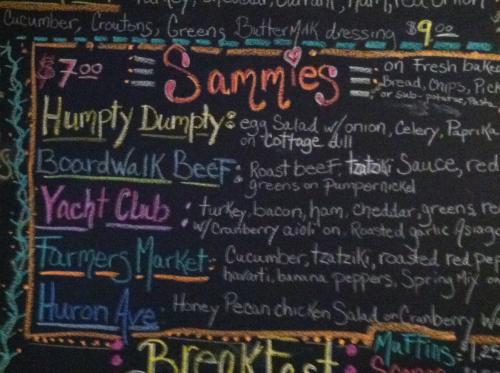 Cucumber, Croutons, Greens ButterMilk dressing $9.00
$7.00 Sammies on Fresh baked
Bread, Chips, Pick
or Sub-
Humpty Dumpty: egg Salad w/onion, Celery, Paprika
on Cottage dill
Boardwalk Beef: Roast beef, tzatziki Sauce, red
greens on Pumpernickel
Yacht Club: turkey, bacon, ham, cheddar, greens, re
w/Cranberry aioli on Roasted garlic Asiago
Farmers Market: Cucumber, tzatziki, roasted red pep
havarti, banana peppers, Spring Mix o
Huron Ave: Honey Pecan chicken Salad on Cranberry W
Breakfast: Muffins: 1.25